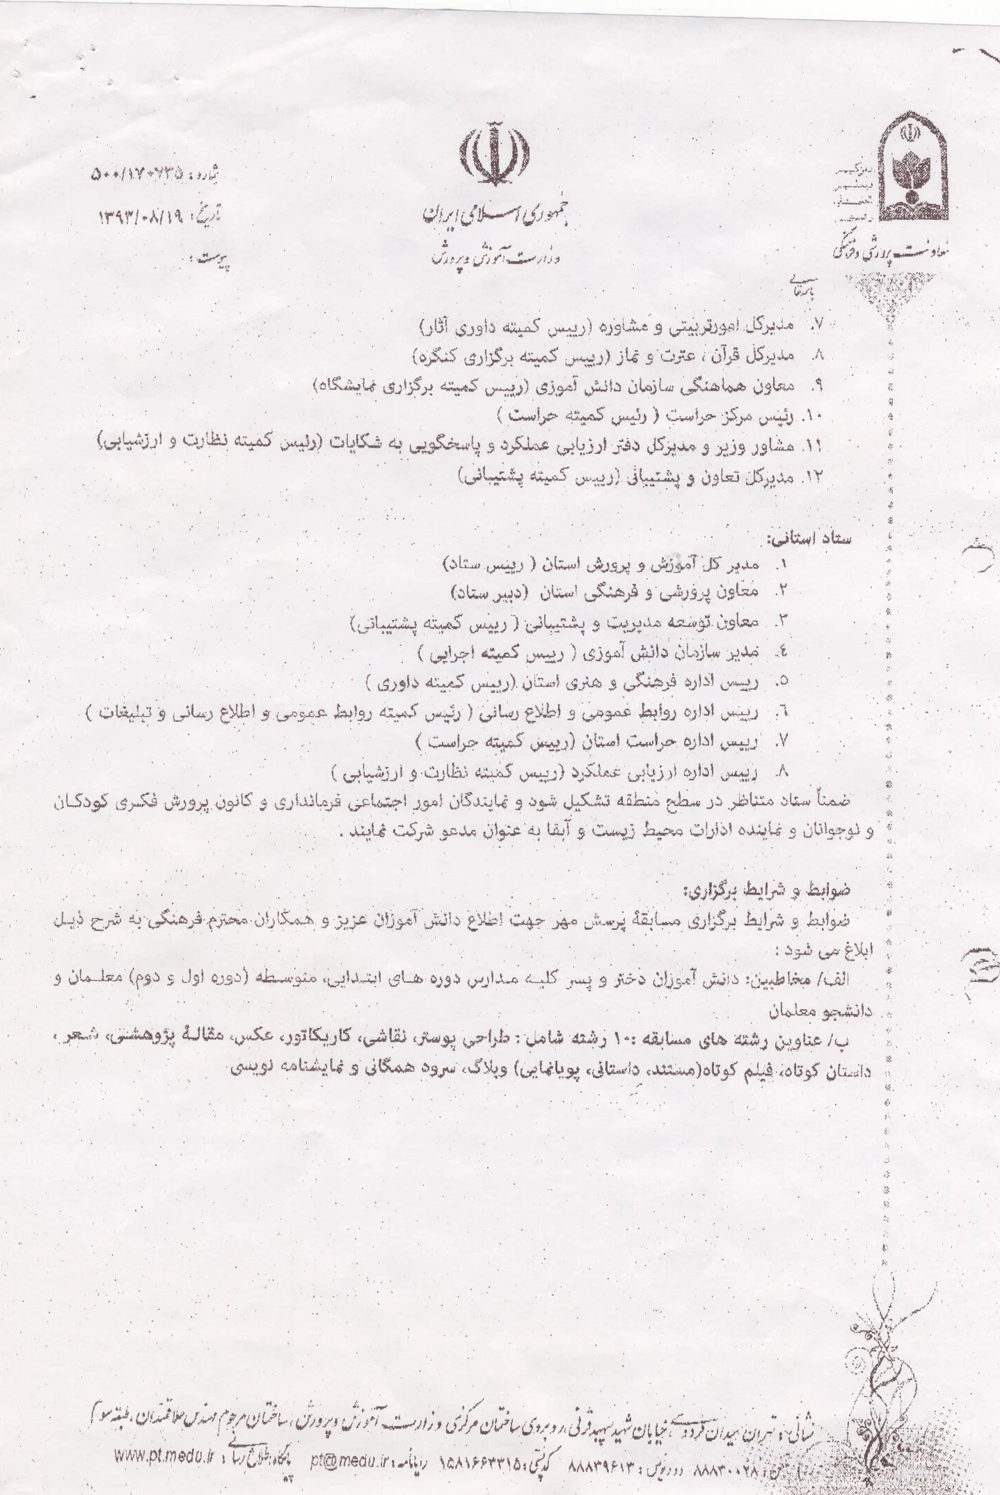 جمهوری اسلامی ایران
وزارت آموزش و پرورش
شماره: ۵۰۰/۱۷۰۷۳۵
تاریخ: ۱۳۹۳/۰۸/۱۹
پیوست:
معاونت پرورشی و فرهنگی
باسمه تعالی
۷. مدیرکل امورتربیتی و مشاوره (رییس کمیته داوری آثار)
۸. مدیرکل قرآن ، عترت و نماز (رییس کمیته برگزاری کنگره)
۹. معاون هماهنگی سازمان دانش آموزی (رییس کمیته برگزاری نمایشگاه)
۱۰. رئیس مرکز حراست ( رئیس کمیته حراست )
۱۱. مشاور وزیر و مدیرکل دفتر ارزیابی عملکرد و پاسخگویی به شکایات (رئیس کمیته نظارت و ارزشیابی)
۱۲. مدیرکل تعاون و پشتیبانی (رییس کمیته پشتیبانی)
ستاد استانی:
۱. مدیر کل آموزش و پرورش استان ( رییس ستاد)
۲. معاون پرورشی و فرهنگی استان (دبیر ستاد)
۳. معاون توسعه مدیریت و پشتیبانی ( رییس کمیته پشتیبانی)
۴. مدیر سازمان دانش آموزی ( رییس کمیته اجرایی )
۵. رییس اداره فرهنگی و هنری استان (رییس کمیته داوری )
۶. رییس اداره روابط عمومی و اطلاع رسانی ( رئیس کمیته روابط عمومی و اطلاع رسانی و تبلیغات )
۷. رییس اداره حراست استان (رییس کمیته حراست )
۸. رییس اداره ارزیابی عملکرد (رییس کمیته نظارت و ارزشیابی )
ضمناً ستاد متناظر در سطح منطقه تشکیل شود و نمایندگان امور اجتماعی فرمانداری و کانون پرورش فکری کودکان
و نوجوانان و نماینده ادارات محیط زیست و آبفا به عنوان مدعو شرکت نمایند .
ضوابط و شرایط برگزاری:
ضوابط و شرایط برگزاری مسابقهٔ پرسش مهر جهت اطلاع دانش آموزان عزیز و همکاران محترم فرهنگی به شرح ذیل
ابلاغ می شود :
الف/ مخاطبین: دانش آموزان دختر و پسر کلیه مدارس دوره های ابتدایی، متوسطه (دوره اول و دوم) معلمان و
دانشجو معلمان
ب/ عناوین رشته های مسابقه :۱۰ رشته شامل : طراحی پوستر، نقاشی، کاریکاتور، عکس، مقالهٔ پژوهشی، شعر ،
داستان کوتاه، فیلم کوتاه(مستند، داستانی، پویانمایی) وبلاگ، سرود همگانی و نمایشنامه نویسی
نشانی : تهران میدان فردوسی خیابان شهید سپهبد قرنی روبروی ساختمان مرکزی وزارت آموزش و پرورش ، ساختمان مرحوم مهندس علاقمندان ، طبقه سوم
تلفن : ۸۸۸۳۰۰۲۸ دورنویس : ۸۸۸۳۹۶۱۳ کدپستی : ۱۵۸۱۶۶۳۳۱۵ رایانامه : pt@medu.ir پایگاه اطلاع رسانی : www.pt.medu.ir